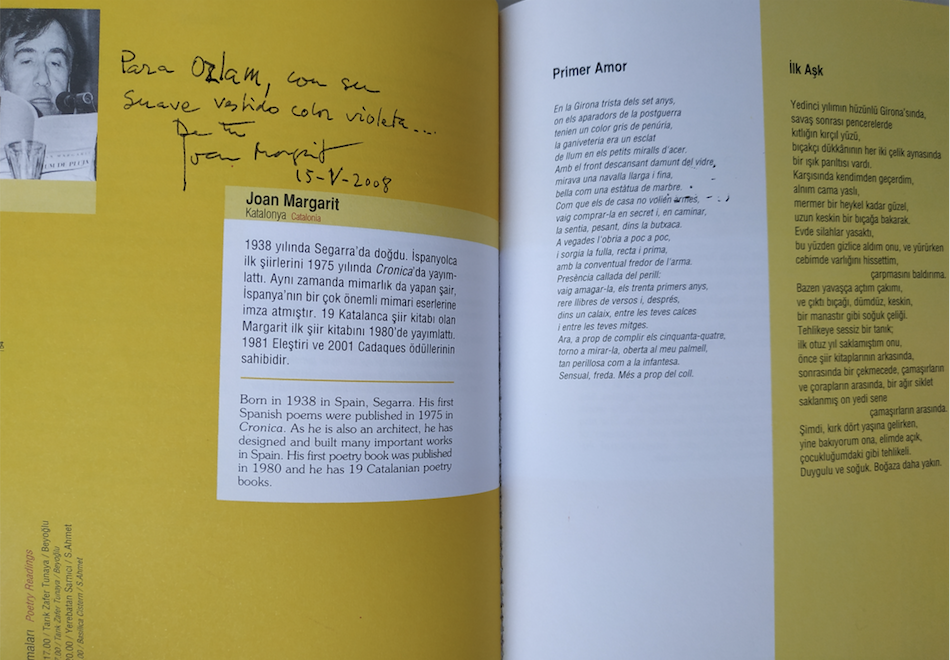 Para Ozlam, con su
suave vestido color violeta...
Joan Margarit
15-V-2008
Joan Margarit
Katalonya Catalonia
1938 yılında Segarra'da doğdu. İspanyolca
ilk şiirlerini 1975 yılında Cronica'da yayım-
lattı. Aynı zamanda mimarlık da yapan şair,
İspanya'nın bir çok önemli mimari eserlerine
imza atmıştır. 19 Katalanca şiir kitabı olan
Margarit ilk şiir kitabını 1980'de yayımlattı.
1981 Eleştiri ve 2001 Cadaques ödüllerinin
sahibidir.
Born in 1938 in Spain, Segarra. His first
Spanish poems were published in 1975 in
Cronica. As he is also an architect, he has
designed and built many important works
in Spain. His first poetry book was published
in 1980 and he has 19 Catalanian poetry
books.
maları Poetry Readings
17.00 / Tarık Zafer Tunaya / Beyoğlu
7.00 / Tarık Zafer Tunaya / Beyoğlu
20.00 / Yerebatan Sarnıcı / S.Ahmet
00 / Basilica Cistern / S.Ahmet
Primer Amor
En la Girona trista dels set anys,
on els aparadors de la postguerra
tenien un color gris de penúria,
la ganiveteria era un esclat
de llum en els petits miralls d'acer.
Amb el front descansant damunt del vidre,
mirava una navalla llarga i fina,
bella com una estàtua de marbre.
Com que els de casa no volien armes,
vaig comprar-la en secret i, en caminar,
la sentia, pesant, dins la butxaca.
A vegades l'obria a poc a poc,
i sorgia la fulla, recta i prima,
amb la conventual fredor de l'arma.
Presència callada del perill:
vaig amagar-la, els trenta primers anys,
rere llibres de versos i, després,
dins un calaix, entre les teves calces
i entre les teves mitges.
Ara, a prop de complir els cinquanta-quatre,
torno a mirar-la, oberta al meu palmell,
tan perillosa com a la infantesa.
Sensual, freda. Més a prop del coll.
İlk Aşk
Yedinci yılımın hüzünlü Girona'sında,
savaş sonrası pencerelerde
kıtlığın kırçıl yüzü,
bıçakçı dükkânının her iki çelik aynasında
bir ışık parıltısı vardı.
Karşısında kendimden geçerdim,
alnım cama yaslı,
mermer bir heykel kadar güzel,
uzun keskin bir bıçağa bakarak.
Evde silahlar yasaktı,
bu yüzden gizlice aldım onu, ve yürürken
cebimde varlığını hissettim,
çarpmasını baldırıma.
Bazen yavaşça açtım çakımı,
ve çıktı bıçağı, dümdüz, keskin,
bir manastır gibi soğuk çeliği.
Tehlikeye sessiz bir tanık;
ilk otuz yıl saklamıştım onu,
önce şiir kitaplarının arkasında,
sonrasında bir çekmecede, çamaşırların
ve çorapların arasında, bir ağır siklet
saklanmış on yedi sene
çamaşırların arasında.
Şimdi, kırk dört yaşına gelirken,
yine bakıyorum ona, elimde açık,
çocukluğumdaki gibi tehlikeli.
Duygulu ve soğuk. Boğaza daha yakın.